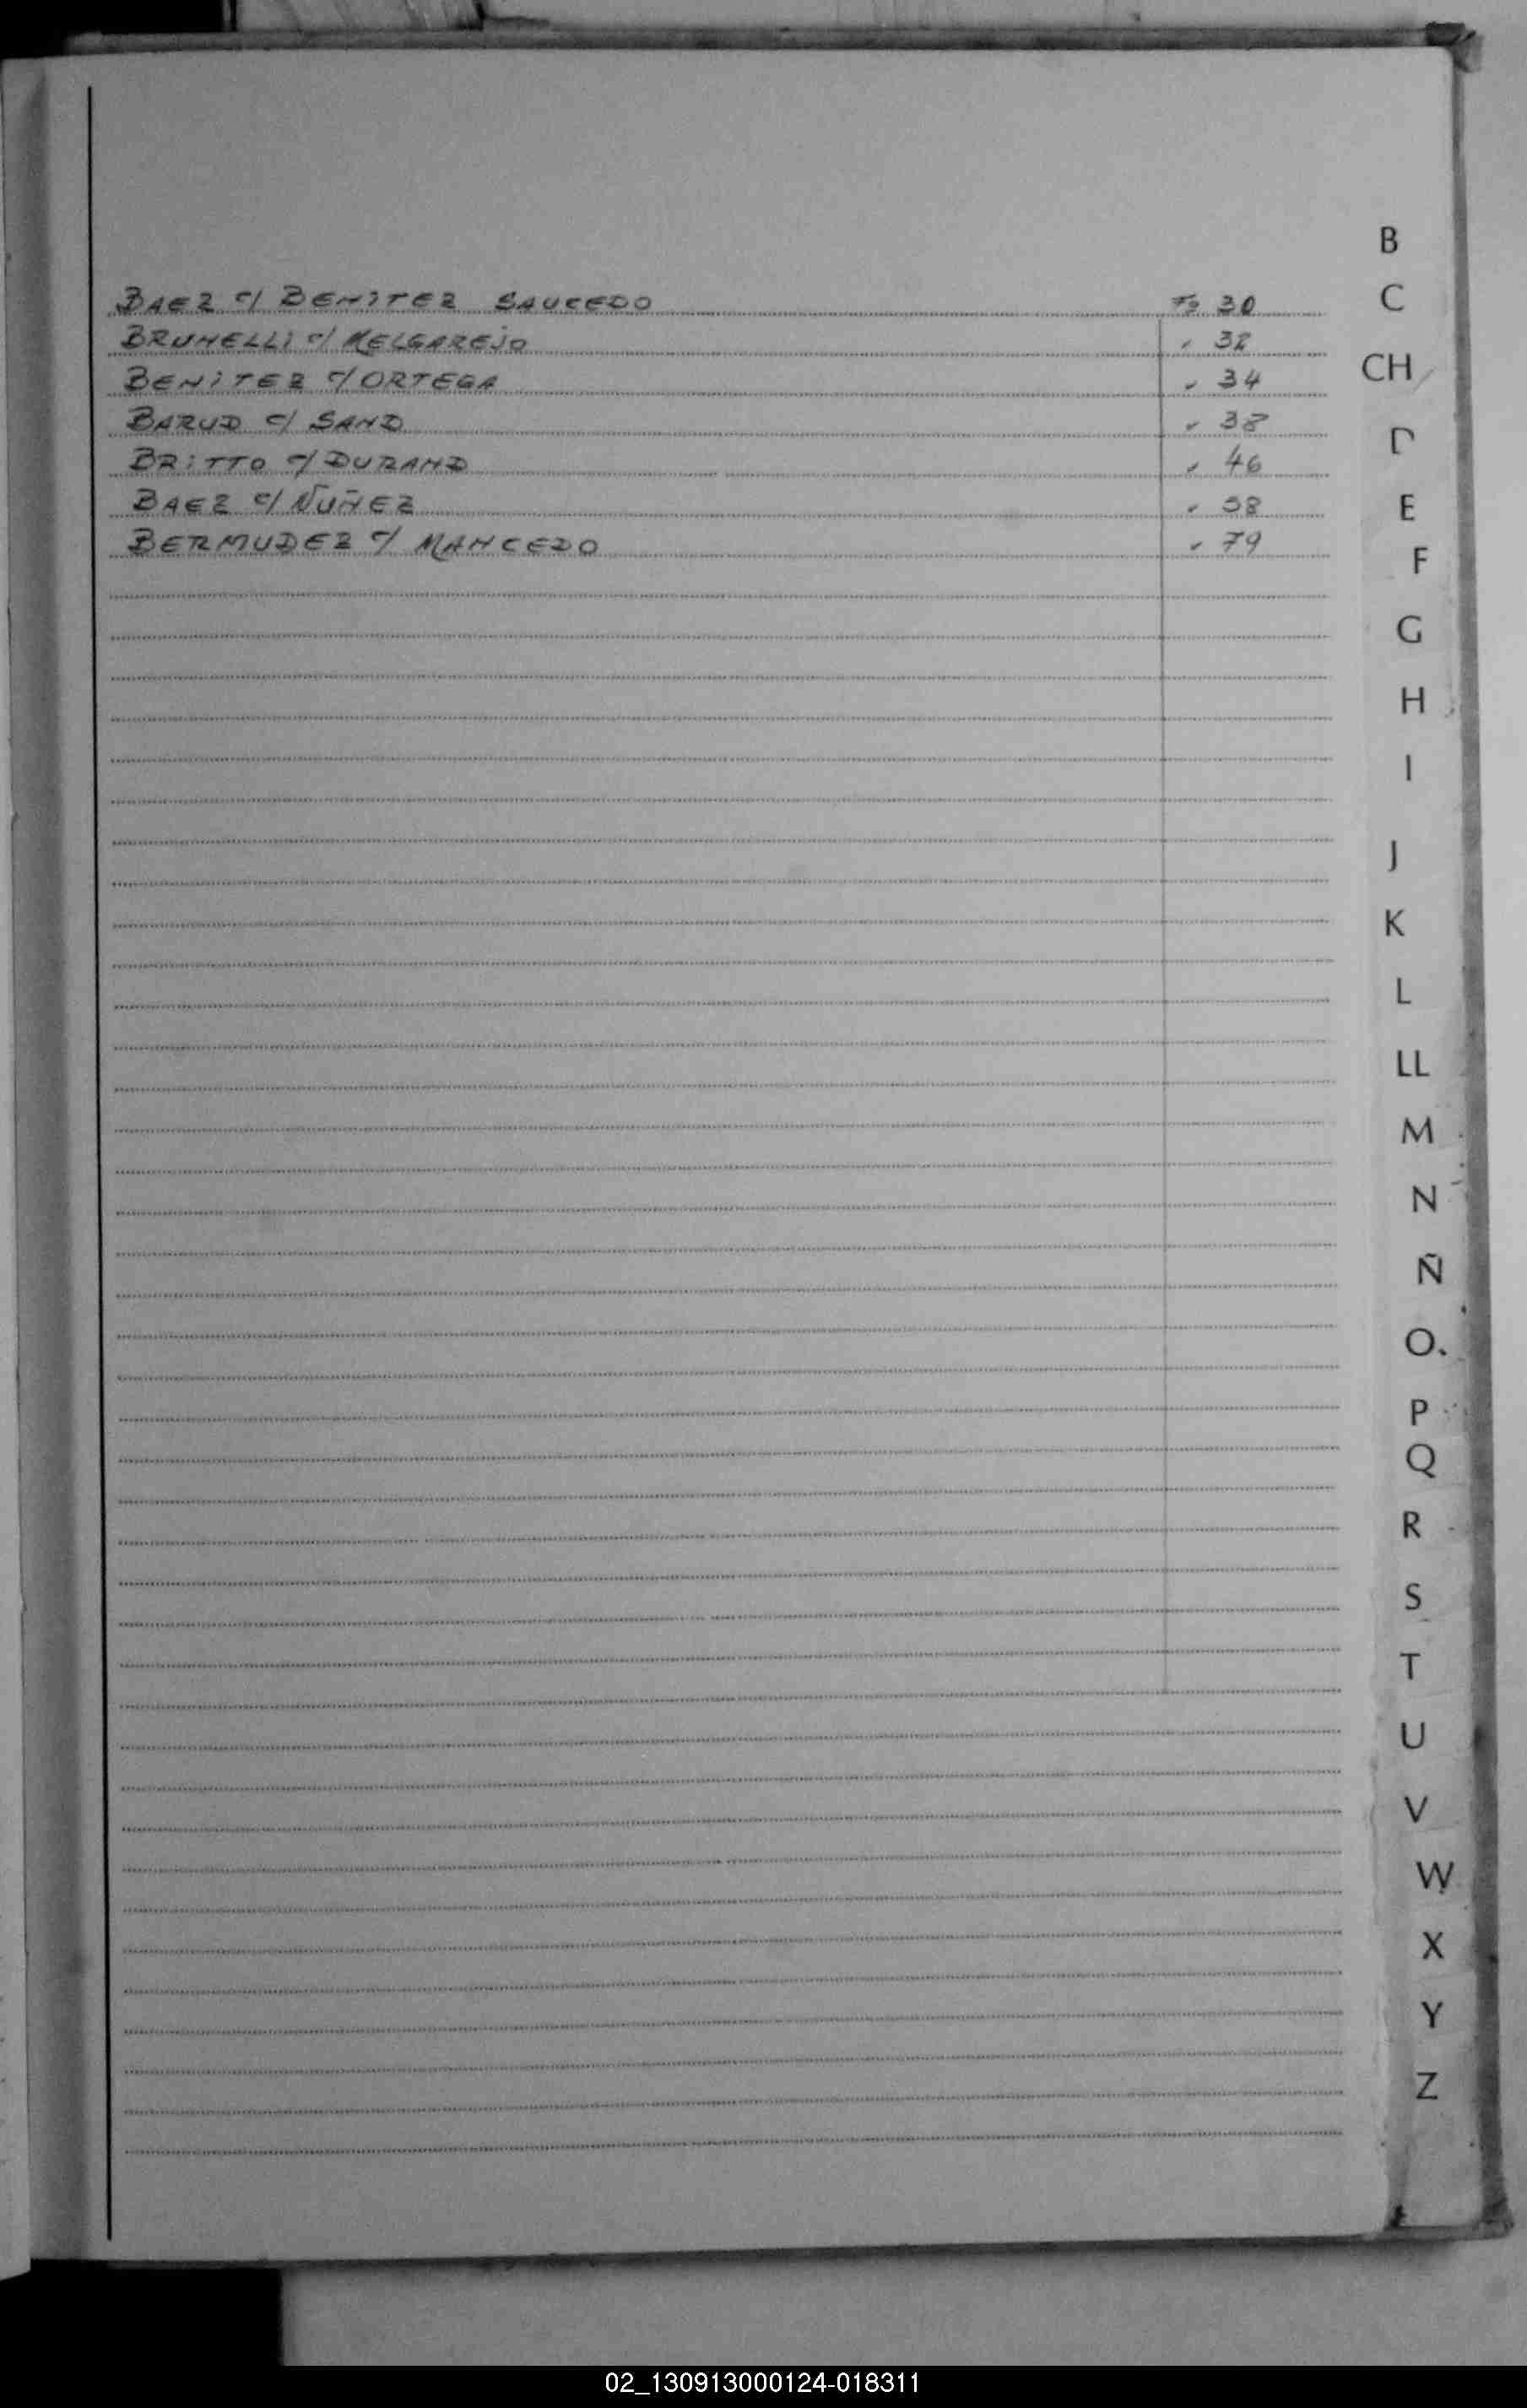 BAEZ c/ BENITEZ SAUCEDO Fº 30
BRUNELLI c/ MELGAREJO " 32
BENITEZ c/ ORTEGA " 34
BARUD c/ SAND " 38
BRITTO c/ DURAND " 46
BAEZ c/ NUÑEZ " 58
BERMUDEZ c/ MANCEDO " 79
B
C
CH
D
E
F
G
H
I
J
K
L
LL
M
N
Ñ
O
P
Q
R
S
T
U
V
W
X
Y
Z
02_130913000124-018311